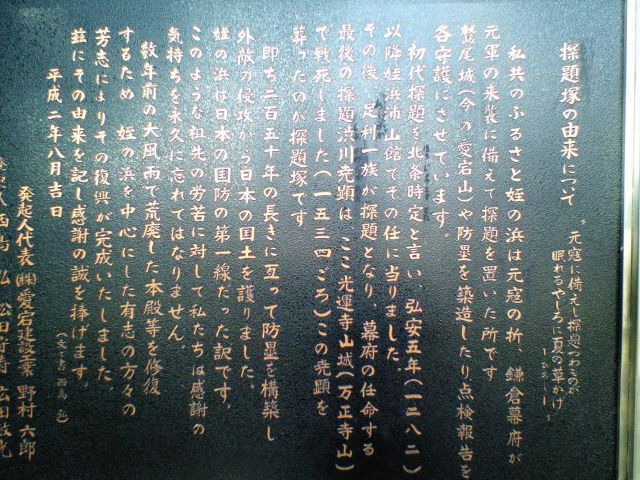 探題塚の由来について
元寇に備えし探題つわものが
眠れるやしろに百の草かげ
私共のふるさと姪の浜は元寇の折、鎌倉幕府が
元軍の来襲に備えて探題を置いた所です
鷲尾城(今の愛宕山)や防塁を築造したり点検報告を
各守護にさせています。
初代探題を北条時定と言い、弘安五年(一二八二)
以降姪浜浦山館でその任に当りました。
その後、足利一族が探題となり、幕府の任命する
最後の探題渋川尭顕は、ここ光運寺山城(万正寺山)
で戦死しました(一五三四ごろ)この尭顕を
葬ったのが探題塚です
即ち二百五十年の長きに亙って防塁を構築し
外敵の侵攻から日本の国土を護りました。
姪の浜は日本の国防の第一線だった訳です。
このような祖先の労苦に対して私たちは感謝の
気持ちを永久に忘れてはなりません。
数年前の大風雨で荒廃した本殿等を修復
するため 姪の浜を中心にした有志の方々の
芳志によりその復興が完成いたしました。
茲にその由来を記し感謝の誠を捧げます。
平成二年八月吉日
発起人代表 (株)愛宕建設業 野村 六郎
西島 弘 松田 広田